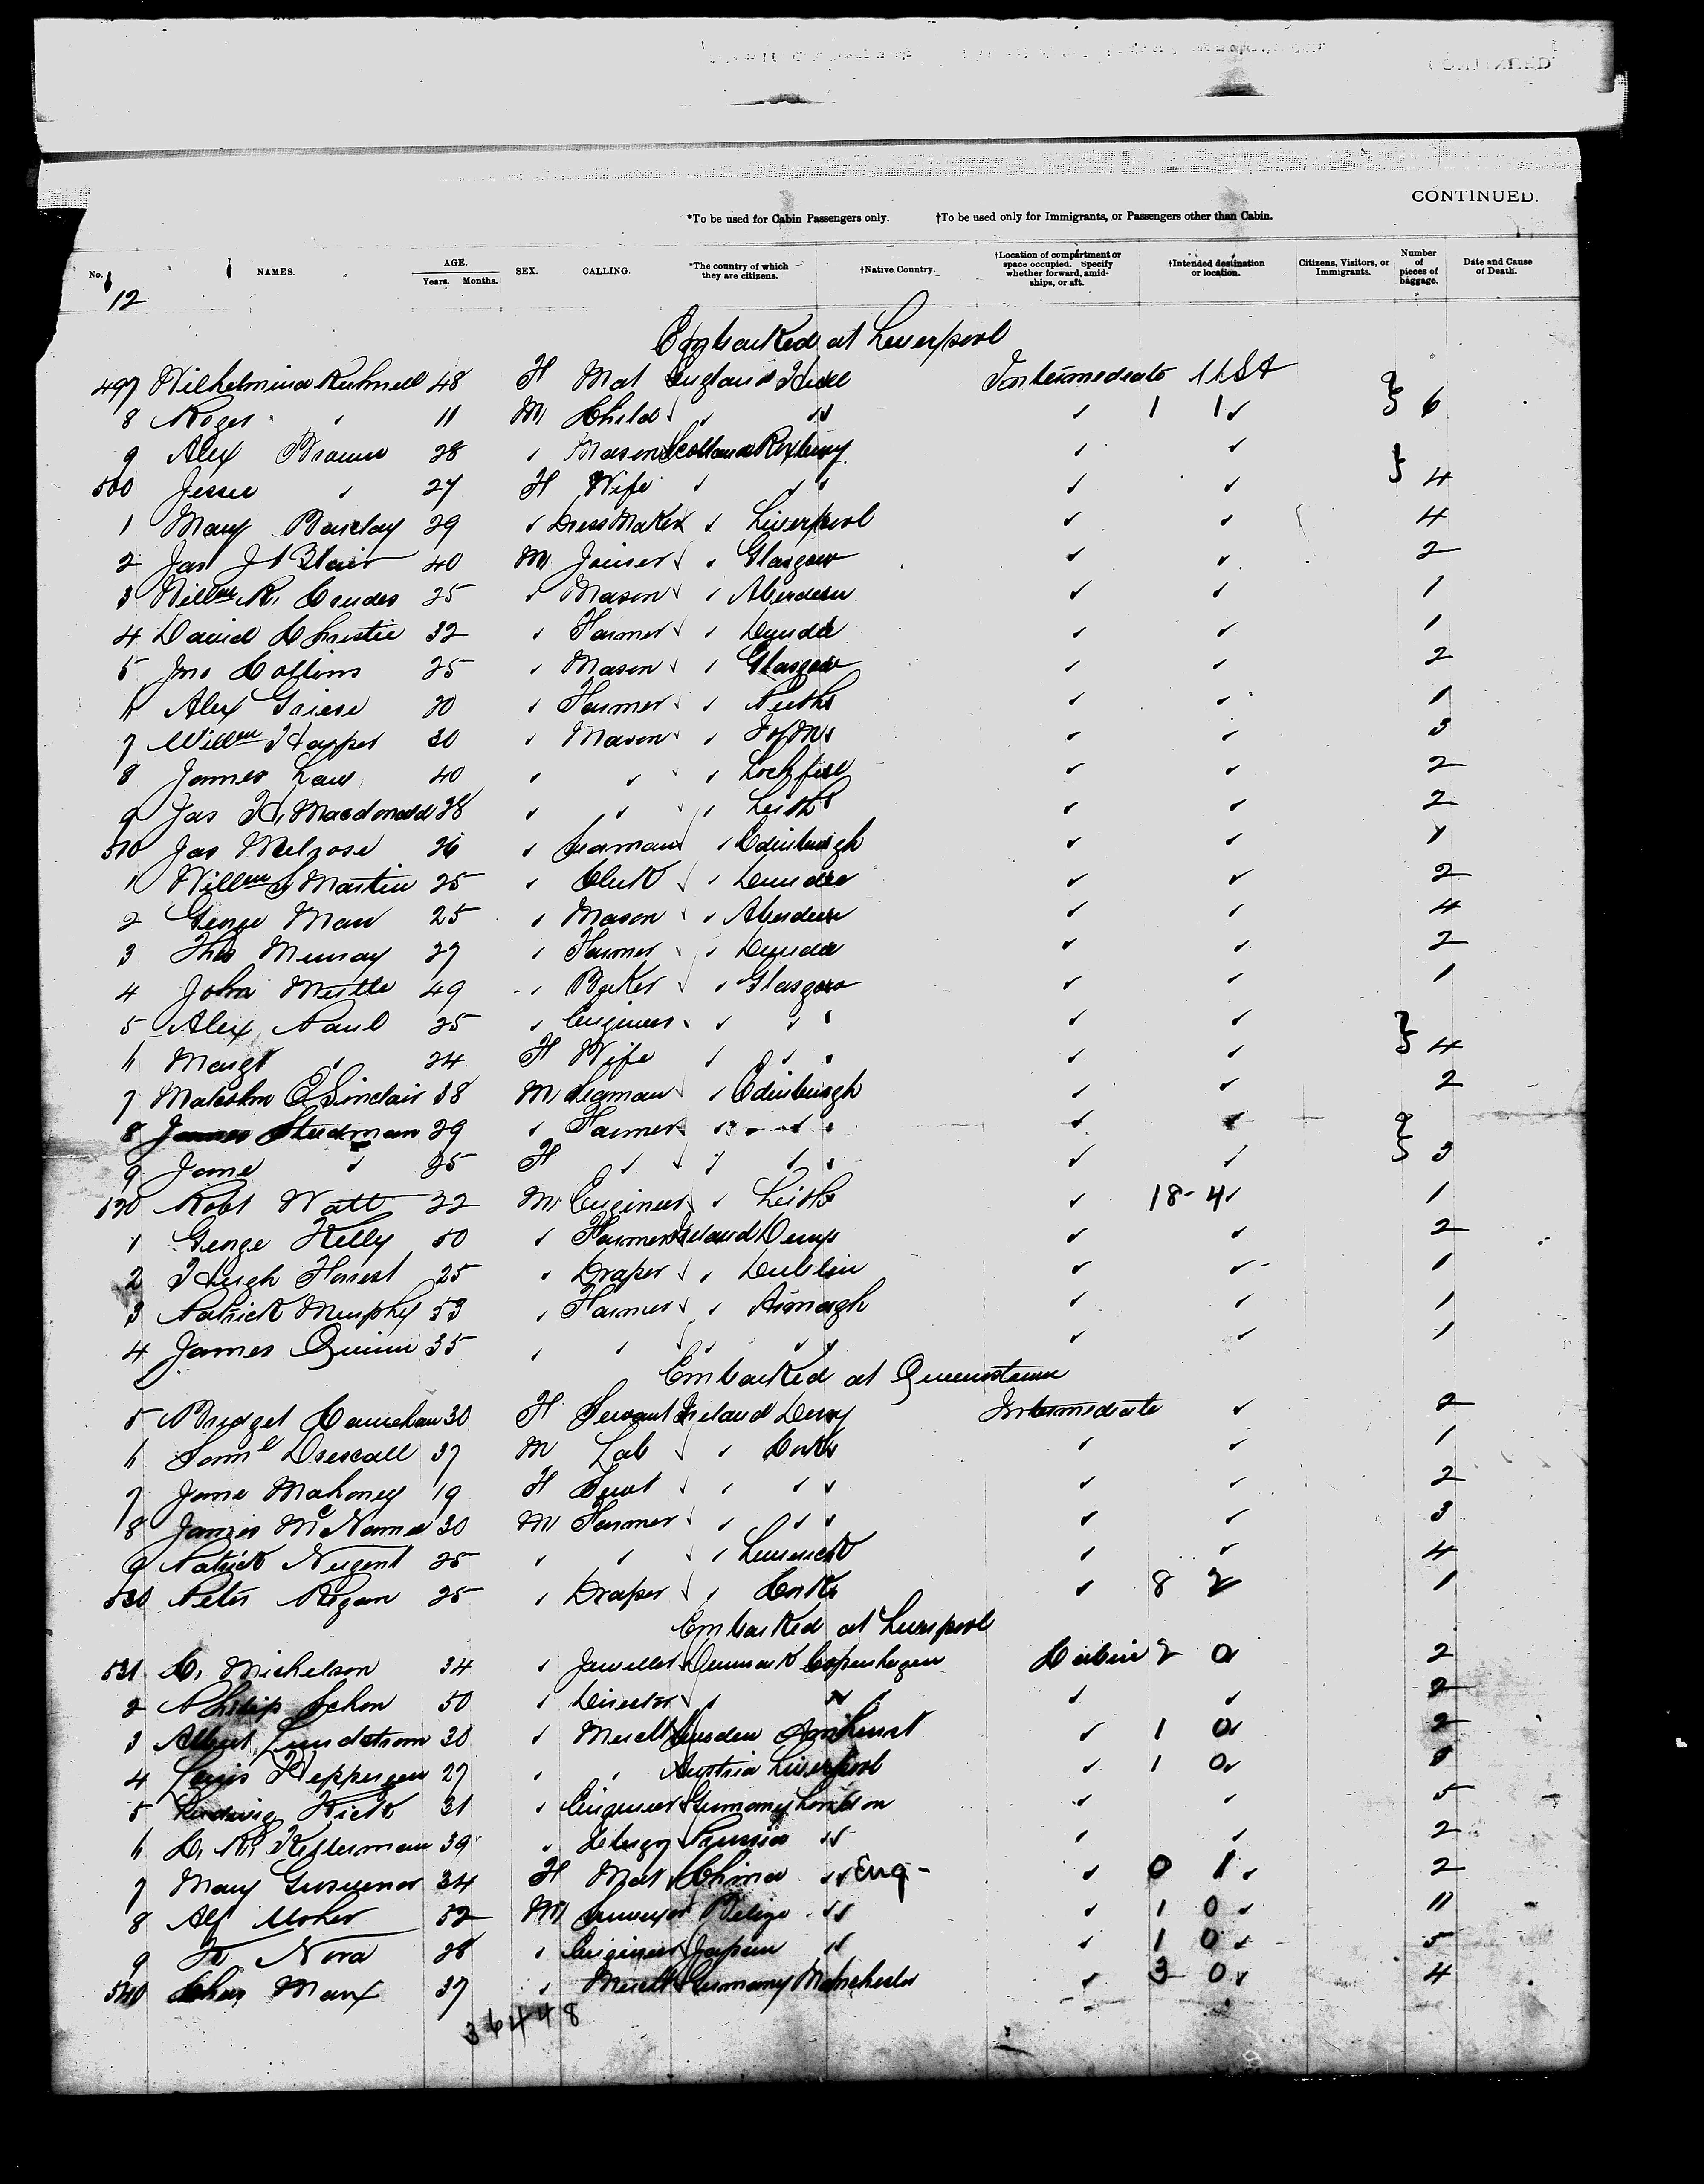 CONTINUED.
*To be used for Cabin Passengers only. †To be used only for Immigrants, or Passengers other than Cabin.
No. NAMES. AGE. Years. Months. SEX. CALLING. *The country of which they are citizens. †Native Country. †Location of compartment or space occupied. Specify whether forward, amidships, or aft. †Intended destination or location. Citizens, Visitors, or Immigrants. Number of pieces of baggage. Date and Cause of Death.
12
Embarked at Liverpool
497 Wilhelmina 48 F Mat England Hull Intermediate
8 Roger 11 M Child 1 1 6
9 Alex Brown 28 Mason Scotland
500 Jessie 27 F Wife 4
1 Mary Barclay 29 Dress Maker Liverpool 4
2 Jas Blair 40 M Joiner Glasgow 2
3 Willm R. 25 Mason Aberdeen 1
4 David Christie 32 Farmer Dundee 1
5 Jno Collins 25 Mason Glasgow 2
6 Alex 20 Farmer Perth 1
7 Willm 30 Mason 3
8 James Law 40 2
9 Jas H. Macdonald 28 Leith 2
510 Jas Melrose 26 Seaman Edinburgh 1
1 Willm Martin 25 Clerk Dundee 2
2 George Maw 25 Mason Aberdeen 4
3 Thos Murray 27 Farmer Dundee 2
4 John 49 Baker Glasgow 1
5 Alex Paul 25 Engineer
6 Margt 24 F Wife 4
7 Malcolm C Sinclair 38 M Seaman Edinburgh 2
8 James Stedman 29 Farmer
9 Jane 25 F 3
520 Robt Watt 22 M Engineer Leith 18-4 1
1 George Kelly 50 Farmer Ireland Derry 2
2 Hugh 25 Draper Dublin 1
3 Patrick Murphy 53 Farmer Armagh 1
4 James Quinn 35 1
Embarked at Queenstown
5 Bridget 30 F Servant Ireland Derry Intermediate 2
6 Saml Driscall 37 M Lab Cork 1
7 Jane Mahoney 19 F Servt 2
8 James McNamee 30 M Farmer 3
9 Patrick Nugent 25 Limerick 4
530 Peter Regan 25 Draper Cork 8 2 1
Embarked at Liverpool
531 C. Michelson 34 Jeweller Denmark Copenhagen Cabin 2 0 2
2 Philip 50 Director 2
3 Albert Lundstrom 30 Mercht Sweden 1 0 2
4 Louis 27 Austria Liverpool 1 0
5 Ludwig 31 Engineer Germany London 5
6 C. Kellerman 39 Clergy Prussia 2
7 Mary 34 F Mat China Eng- 0 1 2
8 Alf 52 M Surveyor 1 0 11
9 Nora 28 Engineer Japan 1 0 5
540 Chas Marx 37 Mercht Germany Manchester 3 0 4
36448